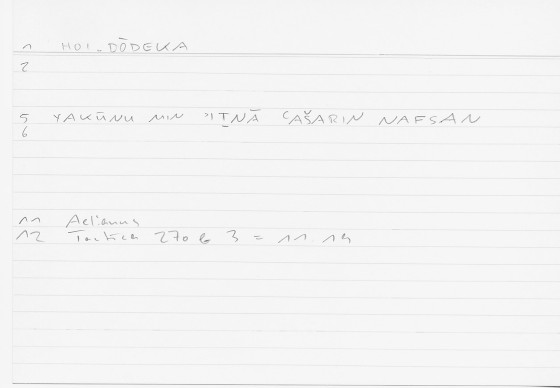 1 HOI_DŌDEKA
2
5 YAKŪNU MIN ʾIṮNĀ ʿAŠARIN NAFSAN
6
11 Aelianus
12 Tactica 270 6 3 = 11 14